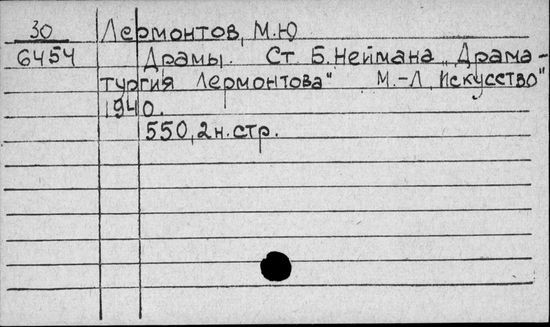 30 Лермонтов, М.Ю
6454 Драмы. Ст Б.Неймана „Драма-
тургия Лермонтова" М.-Л „Искусство"
1940.
550, 2н.стр.